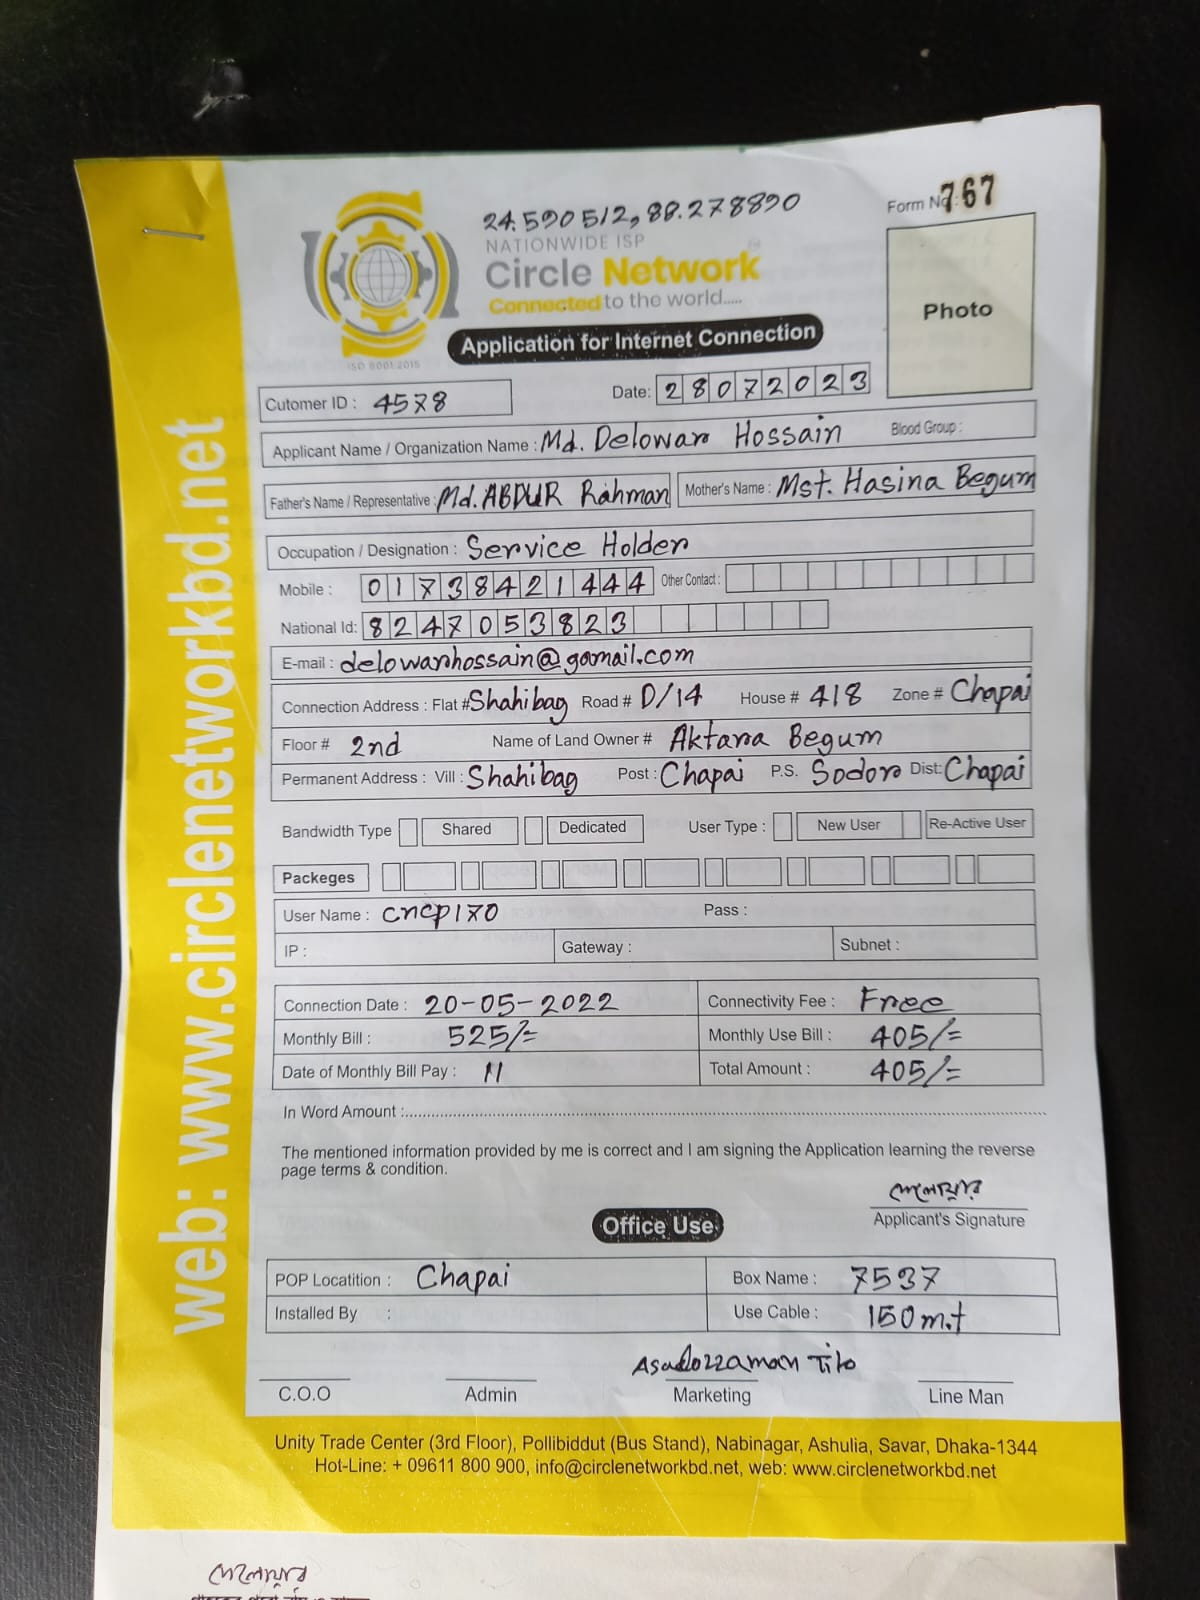 24.590512, 88.278890
Form No: 767
NATIONWIDE ISP
Circle Network
Connected to the world.....
ISO 9001:2015
Photo
Application for Internet Connection
Cutomer ID : 4578
Date: 28072023
Applicant Name / Organization Name : Md. Delowar Hossain Blood Group :
Father's Name / Representative : Md. ABDUR Rahman Mother's Name : Mst. Hasina Begum
Occupation / Designation : Service Holder
Mobile : 01738421444 Other Contact :
National Id: 8247053823
E-mail : delowarhossain@gamail.com
Connection Address : Flat # Shahibag Road # D/14 House # 418 Zone # Chapai
Floor # 2nd Name of Land Owner # Aktara Begum
Permanent Address : Vill : Shahibag Post : Chapai P.S. Sodor Dist: Chapai
Bandwidth Type Shared Dedicated User Type : New User Re-Active User
Packeges
User Name : cncp170 Pass :
IP : Gateway : Subnet :
Connection Date : 20-05-2022 Connectivity Fee : Free
Monthly Bill : 525/= Monthly Use Bill : 405/=
Date of Monthly Bill Pay : 11 Total Amount : 405/=
In Word Amount :
The mentioned information provided by me is correct and I am signing the Application learning the reverse
page terms & condition.
দেলোয়ার
Applicant's Signature
Office Use
POP Locatition : Chapai Box Name : 7537
Installed By : Use Cable : 150m.t
Asadozzaman Tito
C.O.O Admin Marketing Line Man
Unity Trade Center (3rd Floor), Pollibiddut (Bus Stand), Nabinagar, Ashulia, Savar, Dhaka-1344
Hot-Line: + 09611 800 900, info@circlenetworkbd.net, web: www.circlenetworkbd.net
web: www.circlenetworkbd.net
দেলোয়ার